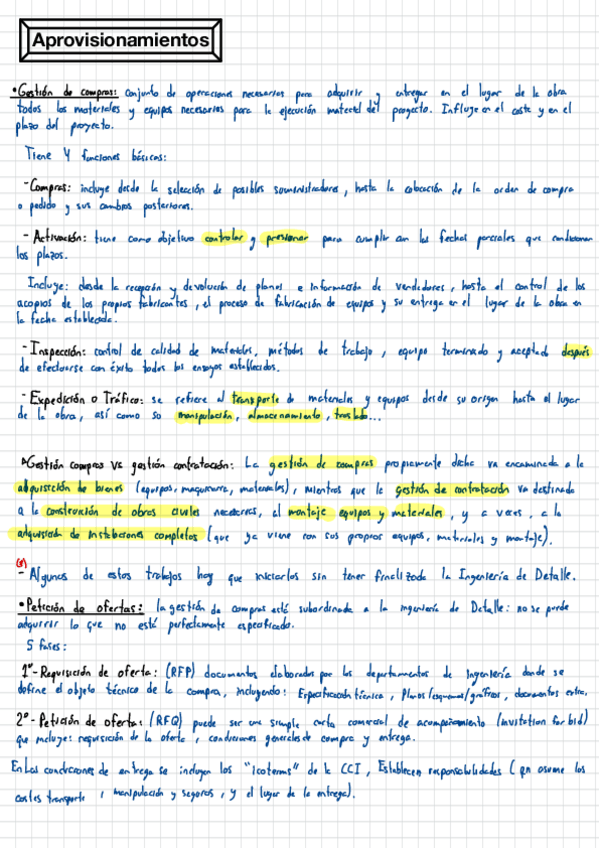 Aprovisionamientos
• Gestión de compras: conjunto de operaciones necesarios para adquirir y entregar en el lugar de la obra
todos los materiales y equipos necesarios para la ejecución material del proyecto. Influye en el coste y en el
plazo del proyecto.
Tiene 4 funciones básicas:
- Compras: incluye desde la selección de posibles suministradores, hasta la colocación de la orden de compra
o pedido y sus cambios posteriores.
- Activación: tiene como objetivo controlar y presionar para cumplir con las fechas parciales que condicionan
los plazos.
Incluye: desde la recepción y devolución de planos e información de vendedores, hasta el control de los
acopios de los propios fabricantes, el proceso de fabricación de equipos y su entrega en el lugar de la obra en
la fecha establecida.
- Inspección: control de calidad de materiales, métodos de trabajo, equipo terminado y aceptado después
de efectuarse con éxito todos los ensayos establecidos.
- Expedición o Tráfico: se refiere al transporte de materiales y equipos desde su origen hasta el lugar
de la obra, así como so manipulación, almacenamiento, traslado...
Gestión compras vs gestión contratación: La gestión de compras propiamente dicha va encaminada a la
adquisición de bienes (equipos, maquinaria, materiales), mientras que la gestión de contratación va destinada
a la construcción de obras civiles necesarias, al montaje equipos y materiales, y a veces, a la
adquisición de instalaciones completas (que ya viene con sus propios equipos, materiales y montaje).
- Algunos de estos trabajos hay que iniciarlos sin tener finalizada la Ingeniería de Detalle.
• Petición de ofertas: la gestión de compras está subordinada a la ingeniería de Detalle: no se puede
adquirir lo que no está perfectamente especificado.
5 fases:
1º- Requisición de oferta: (RFP) documentos elaborados por los departamentos de Ingeniería donde se
define el objeto técnico de la compra, incluyendo: Especificación técnica, Planos/esquemas/gráficos, documentos extra.
2º- Petición de oferta: (RFQ) puede ser una simple carta comercial de acompañamiento (invitation for bid)
que incluye: requisición de la oferta, condiciones generales de compra y entrega.
En las condiciones de entrega se incluyen los "icoterms" de la CCI, Establecen responsabilidades (qn asume los
costes transporte, manipulación y seguros, y el lugar de la entrega).